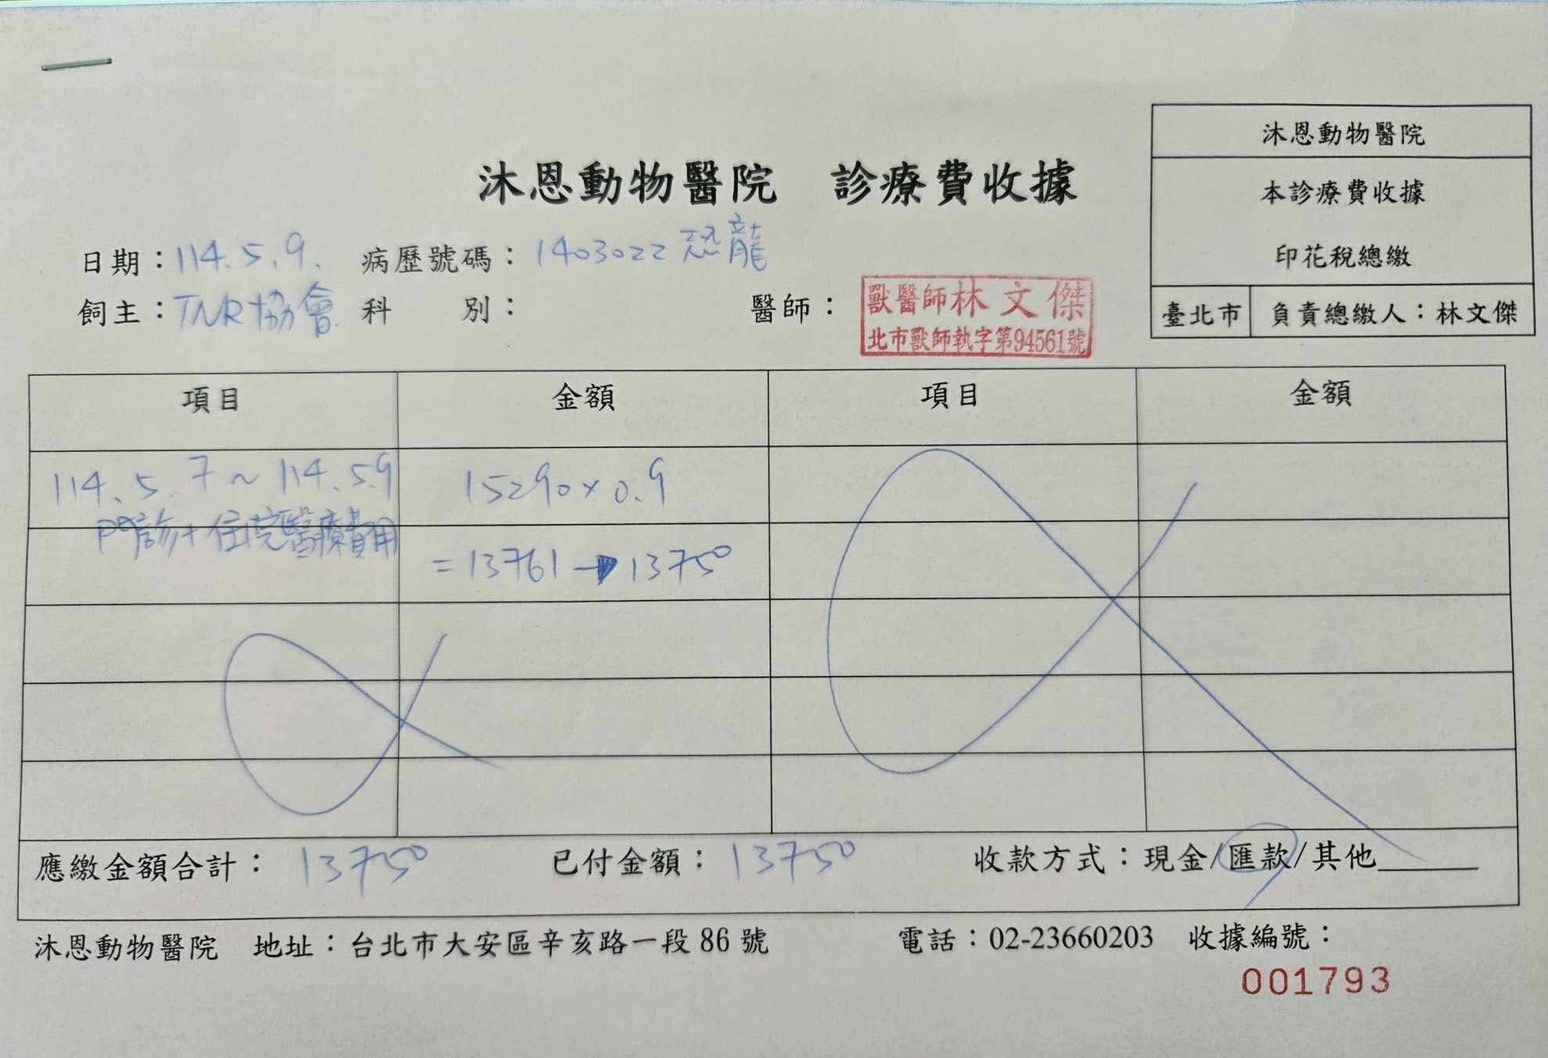 沐恩動物醫院 診療費收據
沐恩動物醫院
本診療費收據
印花稅總繳
臺北市 負責總繳人：林文傑
日期：114.5.9. 病歷號碼：1403022 恐龍
飼主：TNR協會 科 別： 醫師：
獸醫師林文傑
北市獸師執字第94561號
項目 金額 項目 金額
114.5.7～114.5.9 15290×0.9
門診+住院醫療費用 =13761→13750
應繳金額合計：13750 已付金額：13750 收款方式：現金/匯款/其他
沐恩動物醫院 地址：台北市大安區辛亥路一段86號 電話：02-23660203 收據編號：
001793